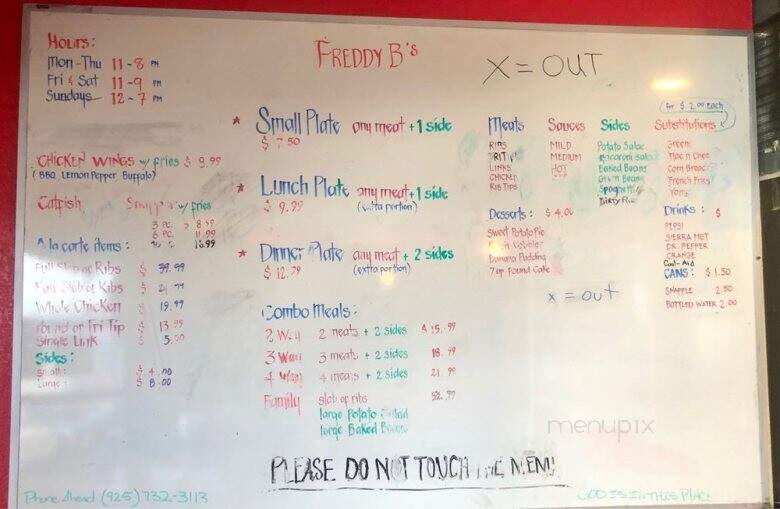 Hours:
Mon-Thu 11-8 PM
Fri & Sat 11-9 PM
Sundays 12-7 PM
FREDDY B's
X = OUT
CHICKEN WINGS w/ fries $ 8.99
(BBQ, Lemon Pepper, Buffalo)
Catfish w/ fries
3 PC. 8.59
6 PC. 11.99
16.99
A la carte items:
Full Slab of Ribs $ 39.99
Slab of Ribs $
Whole Chicken $ 19.99
Pound of Tri Tip $ 13.99
Single Link $ 5.00
Sides:
Small: $ 4.00
Large: $ 8.00
Phone Ahead (925) 732-3113
* Small Plate any meat +1 side
$ 7.50
* Lunch Plate any meat +1 side
$ 9.99 (extra portion)
* Dinner Plate any meat + 2 sides
$ 12.79 (extra portion)
Combo Meals:
2 Way 2 meats + 2 sides $ 15.99
3 Way 3 meats + 2 sides 18.99
4 Way 4 meats + 2 sides 21.99
Family slab of ribs
large Potato Salad
large Baked Beans
PLEASE DO NOT TOUCH THE MENU
Meats
RIBS
TRI TIP
LINKS
CHICKEN
RIB TIPS
Sauces
MILD
MEDIUM
HOT
Sides
Potato Salad
Macaroni Salad
Baked Beans
Green Beans
Spaghetti
Dirty Rice
(for $ 2.00 each)
Substitutions
Greens
Mac n Chee
Corn Bread
French Fries
Yams
Desserts: $ 4.00
Sweet Potato Pie
Cobbler
Banana Pudding
7 up Pound Cake
Drinks: $
PEPSI
SIERRA MIST
DR. PEPPER
ORANGE
Cool-Aid
CANS: $ 1.50
SNAPPLE 2.50
BOTTLED WATER 2.00
X = out
menupix
GOD IS IN THIS PLACE